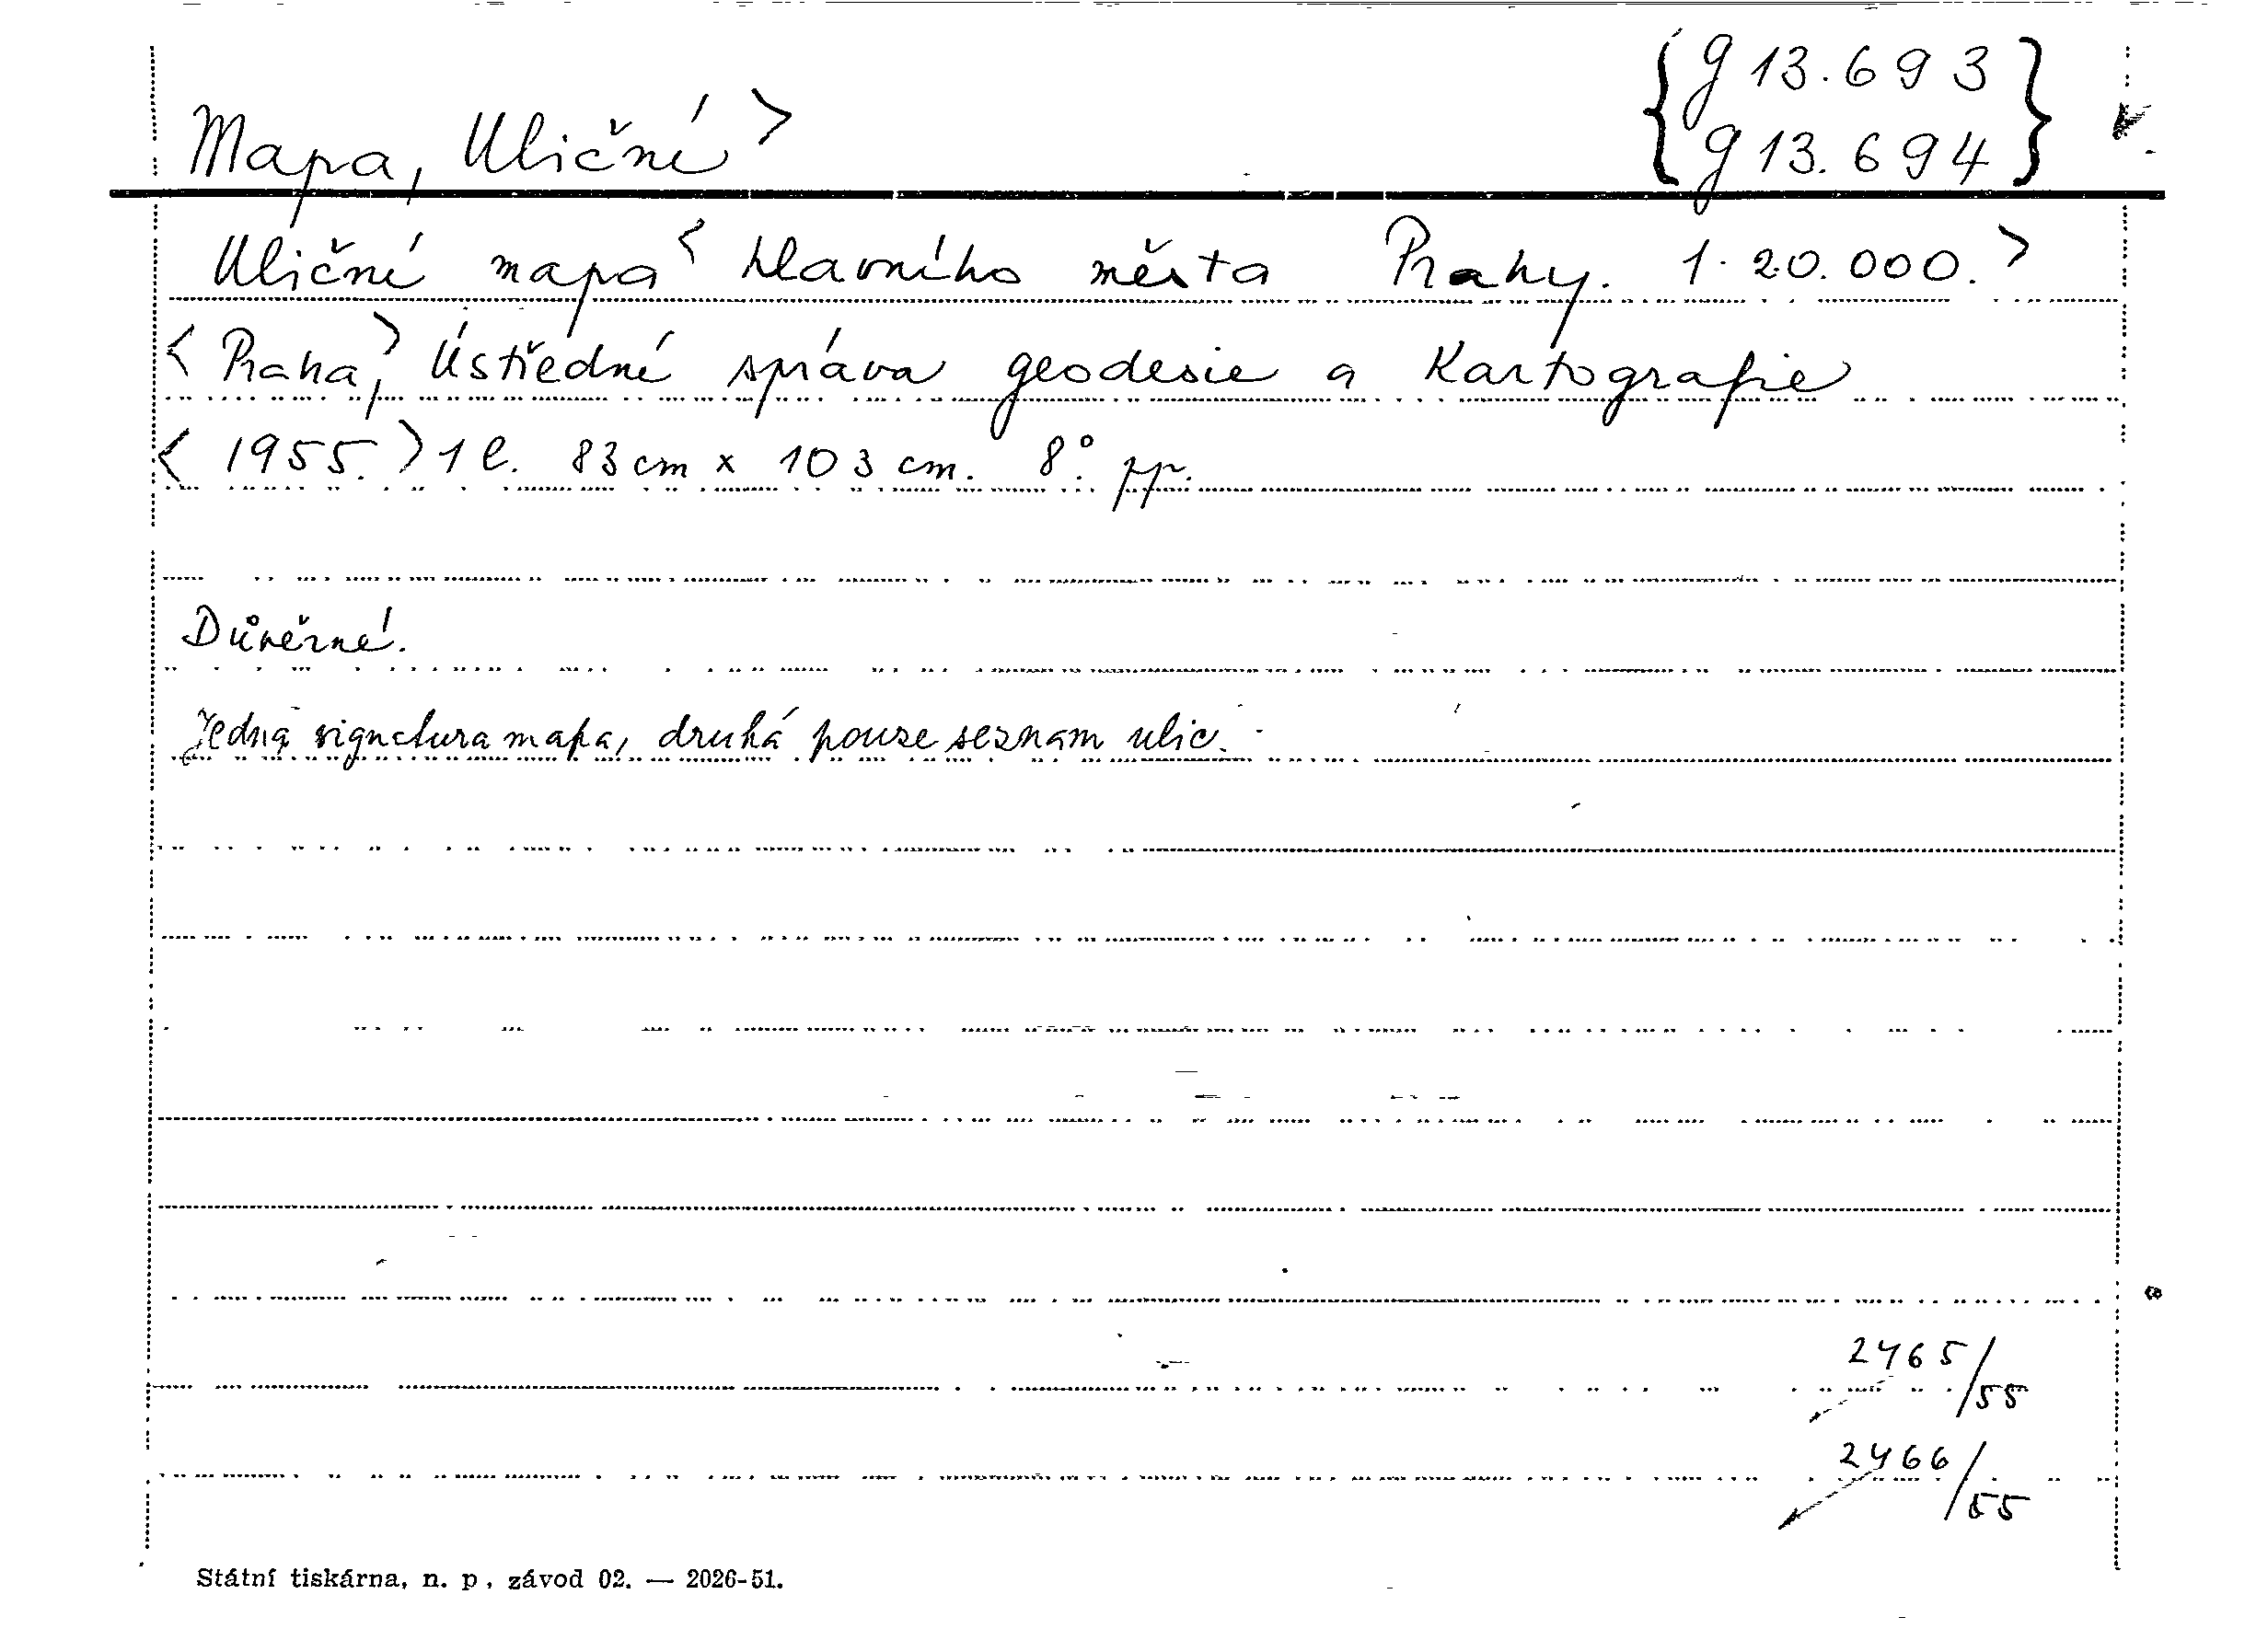 {g 13.693
g 13.694}
Mapa, Uliční >
Uliční mapa < hlavního města Prahy. 1:20.000. >
< Praha, > Ústřední správa geodesie a kartografie
< 1955. > 1 l. 83 cm x 103 cm. 8°. pp.
Důvěrné!
Jedna signatura mapa, druhá pouze seznam ulic.
2465/55
2466/55
Státní tiskárna, n. p., závod 02. — 2026-51.